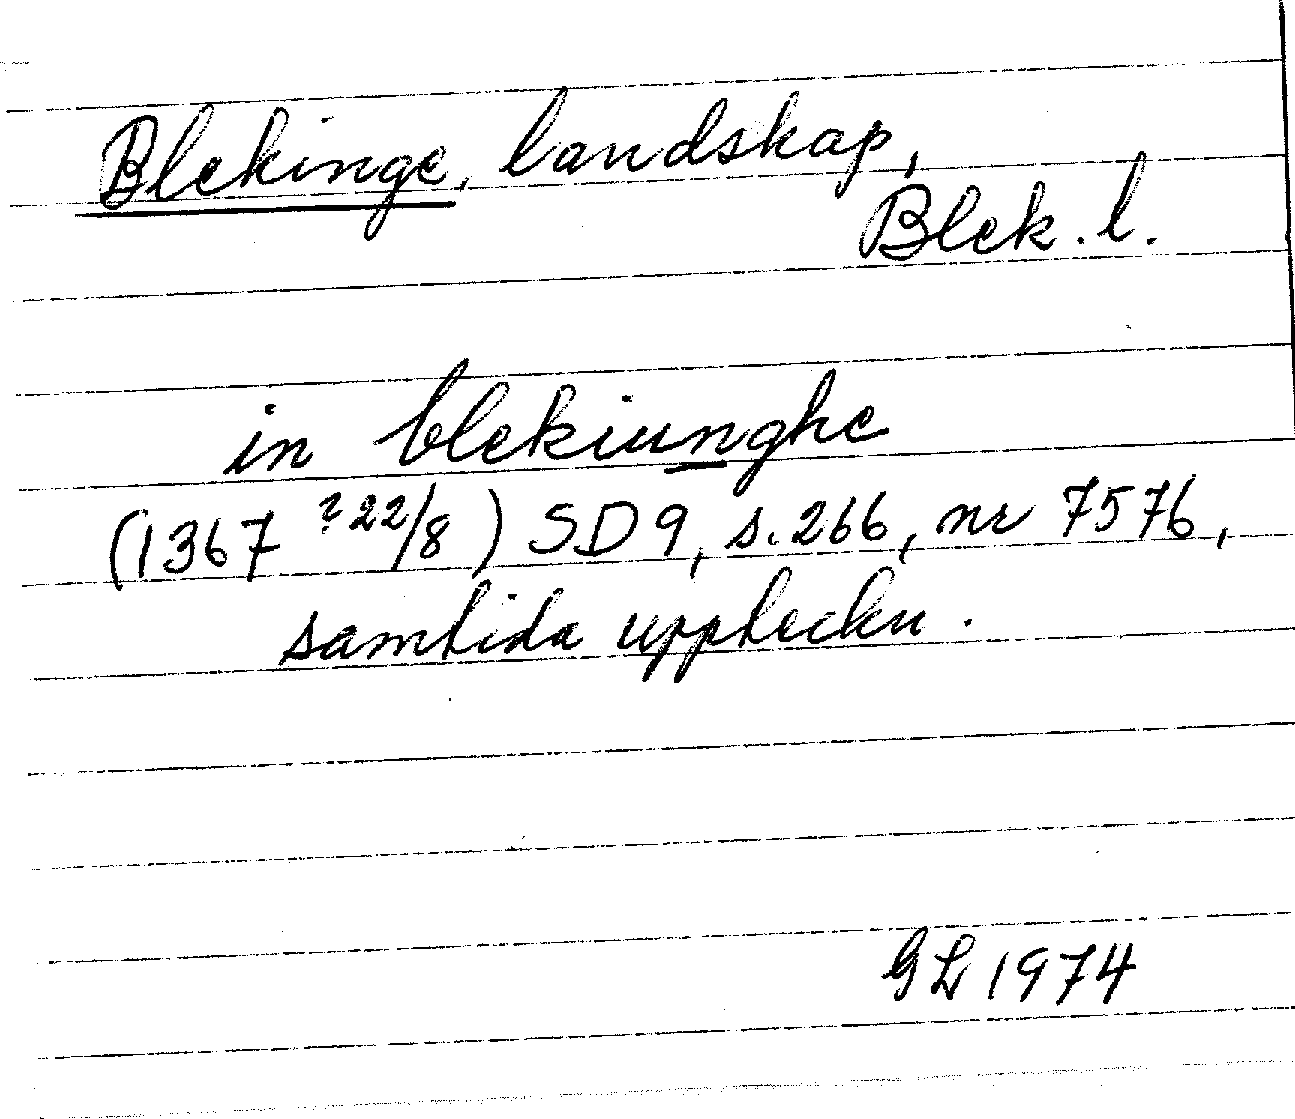 Blekinge, landskap,
Blek. l.
in blekiunghe
(1367 ? 22/8) SD 9, s. 266, nr 7576,
samtida uppteckn.
GL 1974